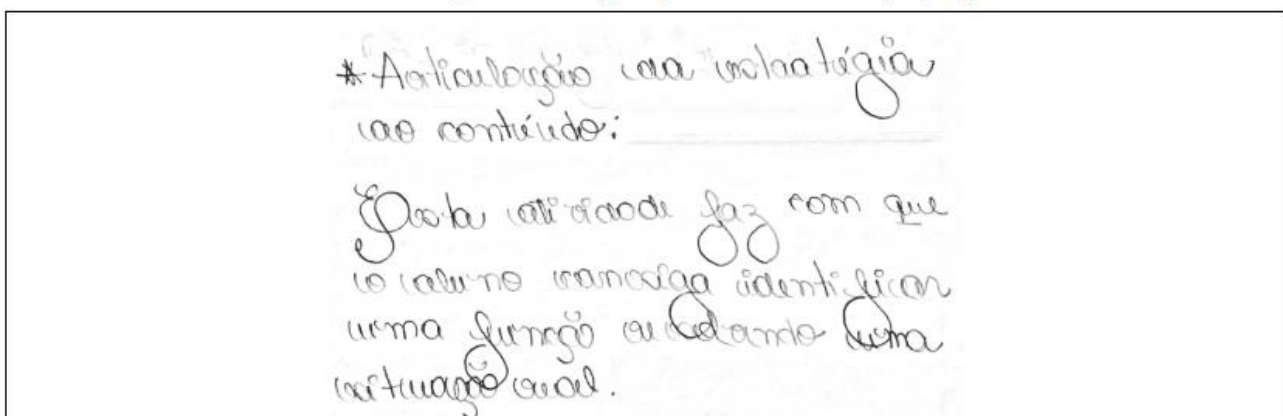 *Articulação da estratégia
ao conteúdo:
Esta atividade faz com que
o aluno consiga identificar
uma função adotando uma
situação real.